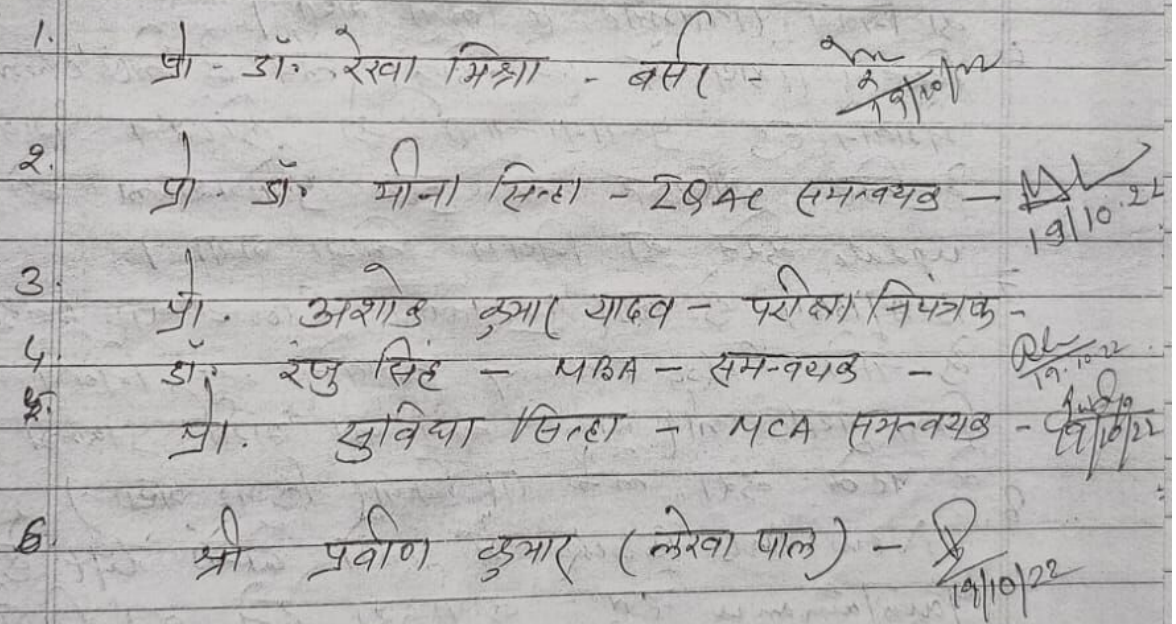 1. प्रो - डॉ. रेखा मिश्रा - बर्सर - 19/10/22
2. प्रो - डॉ. मीना सिन्हा - IQAC समन्वयक - 19/10.22
3. प्रो. अशोक कुमार यादव - परीक्षा नियंत्रक -
4. डॉ. रंजु सिंह - MBA - समन्वयक - 19.10.22
5. प्रो. सुविधा सिन्हा - MCA समन्वयक - 19/10/22
6. श्री प्रवीण कुमार (लेखा पाल) - 19/10/22